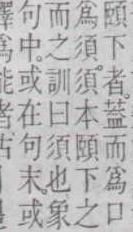 頤下者。蓋而爲口
爲須。須本頤下之
而之訓曰須也象
句中。或在句末。或
釋爲能者古